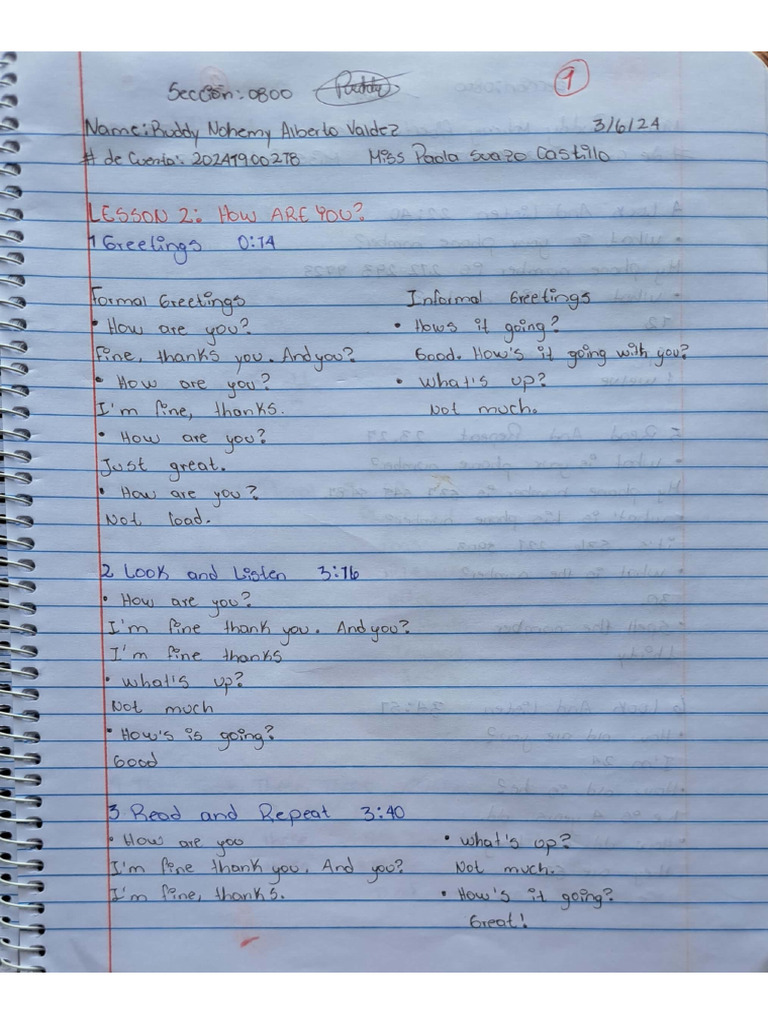 Sección: 0800 Ruddy 1
Name: Ruddy Nohemy Alberto Valdez 3/6/24
# de Cuenta: 20241900278 Miss Paola Suazo Castillo
LESSON 2: HOW ARE YOU?
1 Greetings 0:14
Formal Greetings
• How are you?
Fine, thanks you. And you?
• How are you?
I'm fine, thanks.
• How are you?
Just great.
• How are you?
Not load.
Informal Greetings
• Hows it going?
Good. How's it going with you?
• What's up?
Not much.
2 Look and Listen 3:16
• How are you?
I'm fine thank you. And you?
I'm fine thanks
• What's up?
Not much
• How's is going?
Good
3 Read and Repeat 3:40
• How are you
I'm fine thank you. And you?
I'm fine, thanks.
• What's up?
Not much.
• How's it going?
Great!